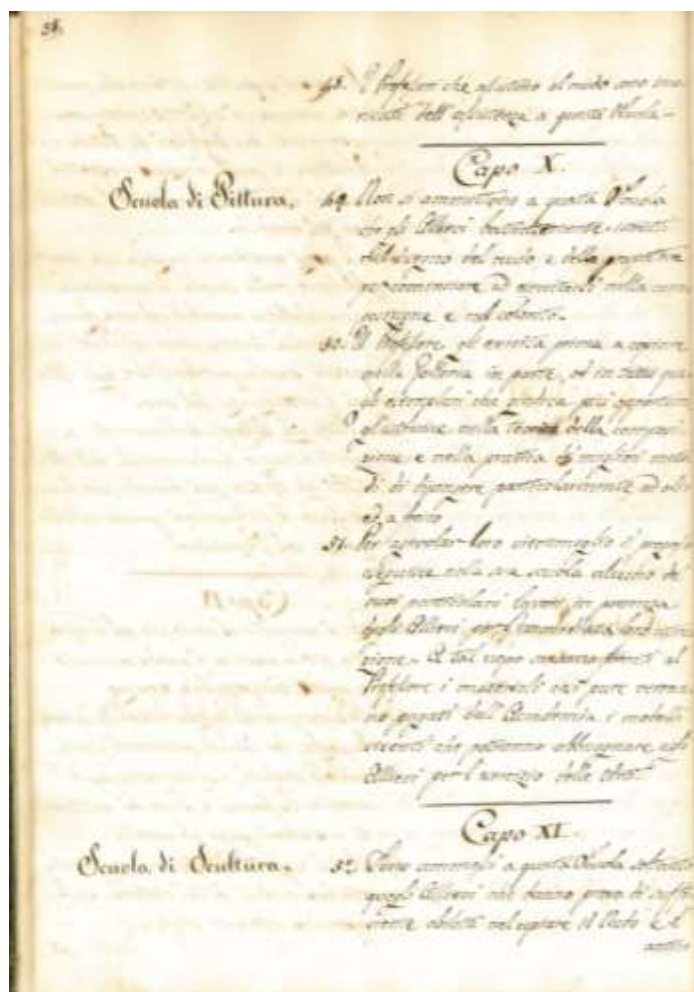 48. I Professori che assistono al nudo sono inca-
ricati dell'assistenza a questa Scuola.
Capo X.
Scuola di Pittura.
49. Non si ammettono a questa Scuola
che gli Allievi
del nudo e della
per cominciare ad esercitarsi nella com-
posizione e nel colorito.
50. Il Professore gli esercita prima a copiare
nella Galleria in parte, od in tutto que-
gli esemplari che giudica più opportuni
nella teoria della composi-
zione e nella pratica de' migliori meto-
di di dipingere particolarmente ad olio
51. Per loro
eseguisce nella sua scuola alcuno de'
suoi particolari lavori in presenza
degli Allievi per immediata loro istru-
zione. A tal uopo al
Professore i materiali così pure verran-
no pagati dall'Accademia i modelli
viventi che potranno abbisognare agli
Allievi per l'esercizio delle
Capo XI.
Scuola di Scultura.
52. Sono ammessi a questa Scuola soltanto
quegli Allievi che danno prove di suffi-
ciente abilità nel copiare il Nudo e l'